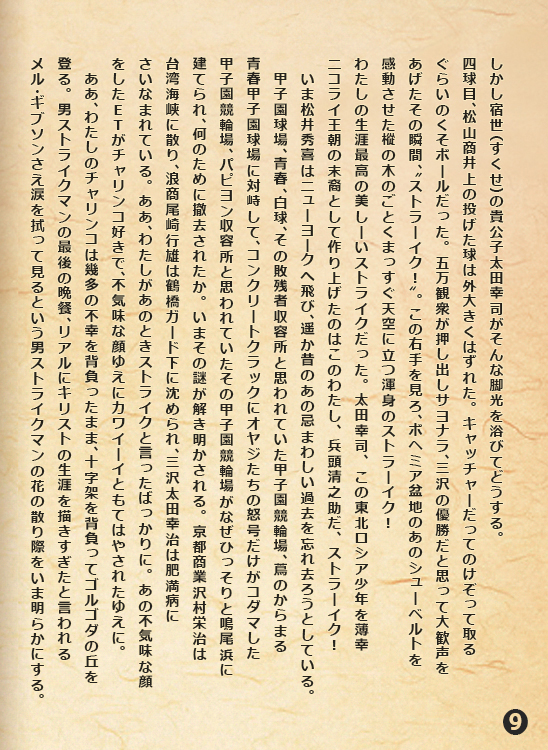 しかし宿世(すくせ)の貴公子太田幸司がそんな脚光を浴びてどうする。
四球目、松山商井上の投げた球は外大きくはずれた。キャッチャーだってのけぞって取る
ぐらいのくそボールだった。五万観衆が押し出しサヨナラ、三沢の優勝だと思って大歓声を
あげたその瞬間、〝ストラーイク!〟。この右手を見ろ、ボヘミア盆地のあのシューベルトを
感動させた樅の木のごとくまっすぐ天空に立つ渾身のストラーイク!
わたしの生涯最高の美しーいストライクだった。太田幸司、この東北ロシア少年を薄幸
ニコライ王朝の末裔として作り上げたのはこのわたし、兵頭清之助だ、ストラーイク!
いま松井秀喜はニューヨークへ飛び、遥か昔のあの忌まわしい過去を忘れ去ろうとしている。
甲子園球場、青春、白球、その敗残者収容所と思われていた甲子園競輪場、蔦のからまる
青春甲子園球場に対峙して、コンクリートクラックにオヤジたちの怒号だけがコダマした
甲子園競輪場、パピヨン収容所と思われていたその甲子園競輪場がなぜひっそりと鳴尾浜に
建てられ、何のために撤去されたか。いまその謎が解き明かされる。京都商業沢村栄治は
台湾海峡に散り、浪商尾崎行雄は鶴橋ガード下に沈められ、三沢太田幸治は肥満病に
さいなまれている。ああ、わたしがあのときストライクと言ったばっかりに。あの不気味な顔
をしたETがチャリンコ好きで、不気味な顔ゆえにカワイーイともてはやされたゆえに。
ああ、わたしのチャリンコは幾多の不幸を背負ったまま、十字架を背負ってゴルゴダの丘を
登る。男ストライクマンの最後の晩餐、リアルにキリストの生涯を描きすぎたと言われる
メル・ギブソンさえ涙を拭って見るという男ストライクマンの花の散り際をいま明らかにする。
9